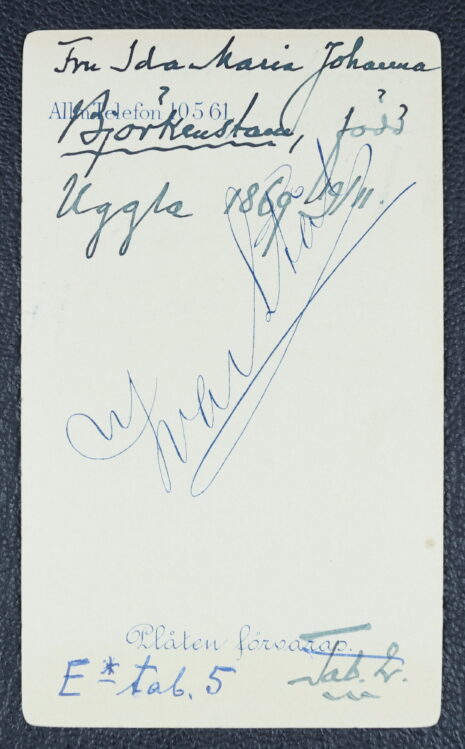 Fru Ida Maria Johanna
Allm Telefon 10561
Björkenstam, född
Uggla 1869 19/11.
Ivar
Plåten förvaras.
E* tab. 5
Tab. 2.